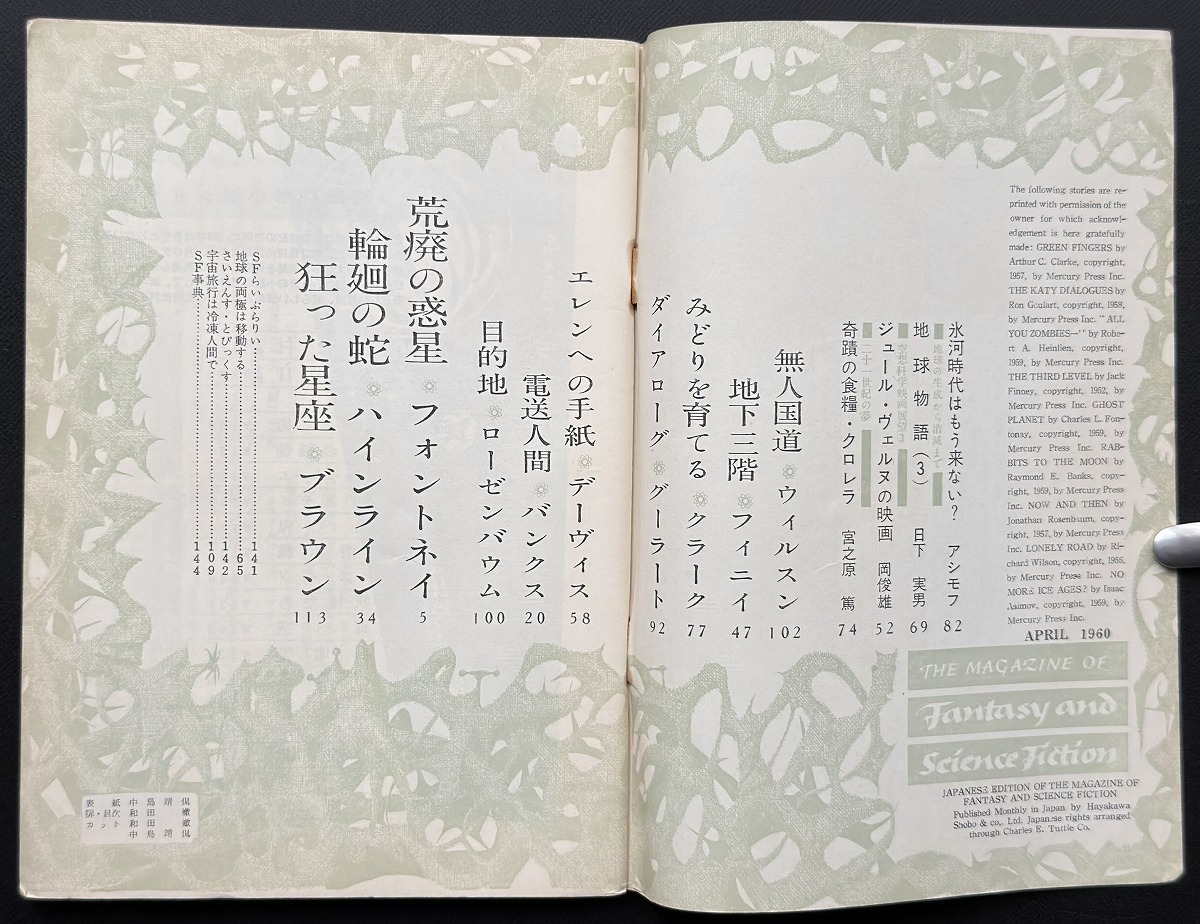 The following stories are re-
printed with permission of the
owner for which acknowl-
edgement is here gratefully
made: GREEN FINGERS by
Arthur C. Clarke, copyright,
1957, by Mercury Press Inc.
THE KATY DIALOGUES by
Ron Goulart, copyright, 1958,
by Mercury Press Inc. "ALL
YOU ZOMBIES—" by Robe-
rt A. Heinlien, copyright,
1959, by Mercury Press Inc.
THE THIRD LEVEL by Jack
Finney, copyright, 1952, by
Mercury Press Inc. GHOST
PLANET by Charles L. Fon-
tonay, copyright, 1959, by
Mercury Press Inc. RAB-
BITS TO THE MOON by
Raymond E. Banks, copy-
right, 1959, by Mercury Press
Inc. NOW AND THEN by
Jonathan Rosenbuum, copy-
right, 1957, by Mercury Press
Inc. LONELY ROAD by Ri-
chard Wilson, copyright, 1955,
by Mercury Press Inc. NO
MORE ICE AGES? by Isaac
Asimov, copyright, 1959, by
Mercury Press Inc.
APRIL 1960
THE MAGAZINE OF
Fantasy and
Science Fiction
JAPANESE EDITION OF THE MAGAZINE OF
FANTASY AND SCIENCE FICTION
Published Monthly in Japan by Hayakawa
Shobo & co., Ltd. Japanese rights arranged
through Charles E. Tuttle Co.
氷河時代はもう来ない? アシモフ 82
地球の生成から消滅まで
地球物語(3) 日下 実男 69
空想科学映画展望3
ジュール・ヴェルヌの映画 岡俊雄 52
二十一世紀の夢
奇蹟の食糧・クロレラ 宮之原 篤 74
無人国道 ウィルスン 102
地下三階 フィニイ 47
みどりを育てる クラーク 77
ダイアローグ グーラート 92
エレンへの手紙 デーヴィス 58
電送人間 バンクス 20
目的地 ローゼンバウム 100
荒廃の惑星 フォントネイ 5
輪廻の蛇 ハインライン 34
狂った星座 ブラウン 113
SFらいぶらりい……………141
地球の両極は移動する……………65
さいえんす・とぴっくす……………142
宇宙旅行は冷凍人間で……………109
SF事典……………144
表紙 中島靖侃
扉・目次 和田徹
カット 和田徹
中島靖侃